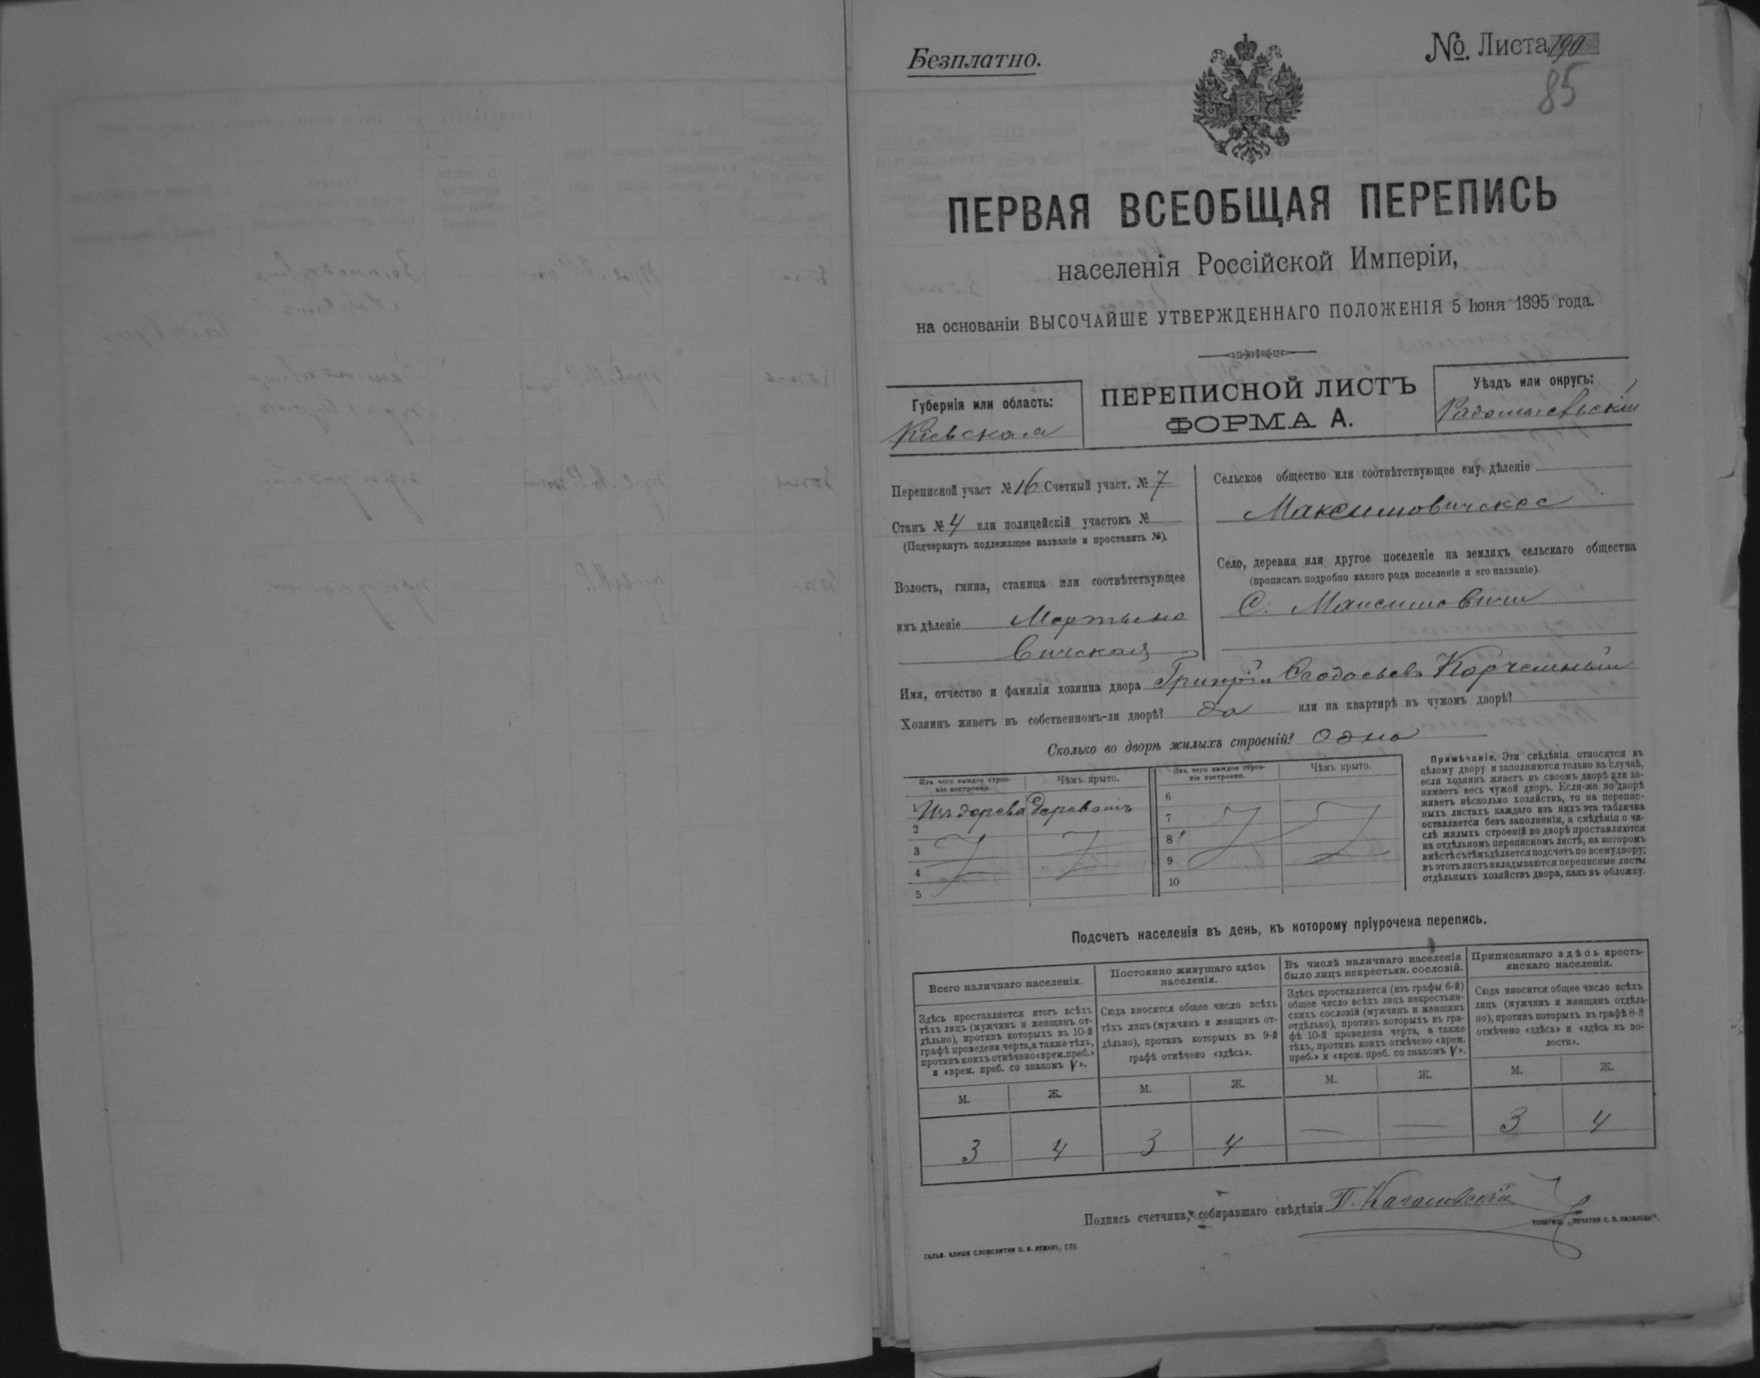 Безплатно.
№. Листа 190
85
ПЕРВАЯ ВСЕОБЩАЯ ПЕРЕПИСЬ
населенія Россійской Имперіи,
на основаніи ВЫСОЧАЙШЕ УТВЕРЖДЕННАГО ПОЛОЖЕНІЯ 5 Іюня 1895 года.
Губернія или область:
Кіевская
ПЕРЕПИСНОЙ ЛИСТЪ
ФОРМА А.
Уѣздъ или округъ:
Радомысльскій
Переписной участ № 16 Счетный участ. № 7
Станъ № 4 или полицейскій участокъ №
(Подчеркнуть подлежащее названіе и проставить №).
Волость, гмина, станица или соотвѣтствующее
имъ дѣленіе Мартыно
вичская
Сельское общество или соотвѣтствующее ему дѣленіе
Максимовичское
Село, деревня или другое поселеніе на земляхъ сельскаго общества
(прописать подробно какого рода поселеніе и его названіе)
С. Максимовичи
Имя, отчество и фамилія хозяина двора Григорій Феодосьевъ Корчемный
Хозяинъ живетъ въ собственномъ-ли дворѣ? да или на квартирѣ въ чужомъ дворѣ?
Сколько во дворѣ жилыхъ строеній? Одно
Изъ чего каждое строе-
ніе построено.
Чѣмъ крыто.
Изъ чего каждое строе-
ніе построено.
Чѣмъ крыто.
1 Изъ дерева Деревомъ
2
3
4
5
6
7
8
9
10
Примѣчаніе. Эти свѣдѣнія относятся къ
цѣлому двору и заполняются только въ случаѣ,
если хозяинъ живетъ въ своемъ дворѣ или за-
нимаетъ весь чужой дворъ. Если-же во дворѣ
живетъ нѣсколько хозяйствъ, то на перепис-
ныхъ листахъ каждаго изъ нихъ эта табличка
оставляется безъ заполненія, а свѣдѣнія о чи-
слѣ жилыхъ строеній во дворѣ проставляются
на отдѣльномъ переписномъ листѣ, на которомъ
вмѣстѣ съ тѣмъ дѣлается подсчетъ по всему двору;
въ этотъ листъ вкладываются переписные листы
отдѣльныхъ хозяйствъ двора, какъ въ обложку.
Подсчетъ населенія въ день, къ которому пріурочена перепись.
Всего наличнаго населенія.
Здѣсь проставляется итогъ всѣхъ
тѣхъ лицъ (мужчинъ и женщинъ от-
дѣльно), противъ которыхъ въ 10-й
графѣ проведена черта, а также тѣхъ,
противъ коихъ отмѣчено «врем. преб.»
и «врем. преб. со знакомъ V».
Постоянно живущаго здѣсь
населенія.
Сюда вносится общее число всѣхъ
тѣхъ лицъ (мужчинъ и женщинъ от-
дѣльно), противъ которыхъ въ 9-й
графѣ отмѣчено «здѣсь».
Въ числѣ наличнаго населенія
было лицъ некрестьян. сословій.
Здѣсь проставляется (изъ графы 6-й)
общее число всѣхъ лицъ некрестьян-
скихъ сословій (мужчинъ и женщинъ
отдѣльно), противъ которыхъ въ гра-
фѣ 10-й проведена черта, а также
тѣхъ, противъ коихъ отмѣчено «врем.
преб.» и «врем. преб. со знакомъ V».
Приписаннаго здѣсь кресть-
янскаго населенія.
Сюда вносится общее число всѣхъ
лицъ (мужчинъ и женщинъ отдѣль-
но), противъ которыхъ въ графѣ 8-й
отмѣчено «здѣсь» и «здѣсь въ во-
лости».
М. Ж. М. Ж. М. Ж. М. Ж.
3 4 3 4 — — 3 4
Подпись счетчика, собиравшаго свѣдѣнія П.